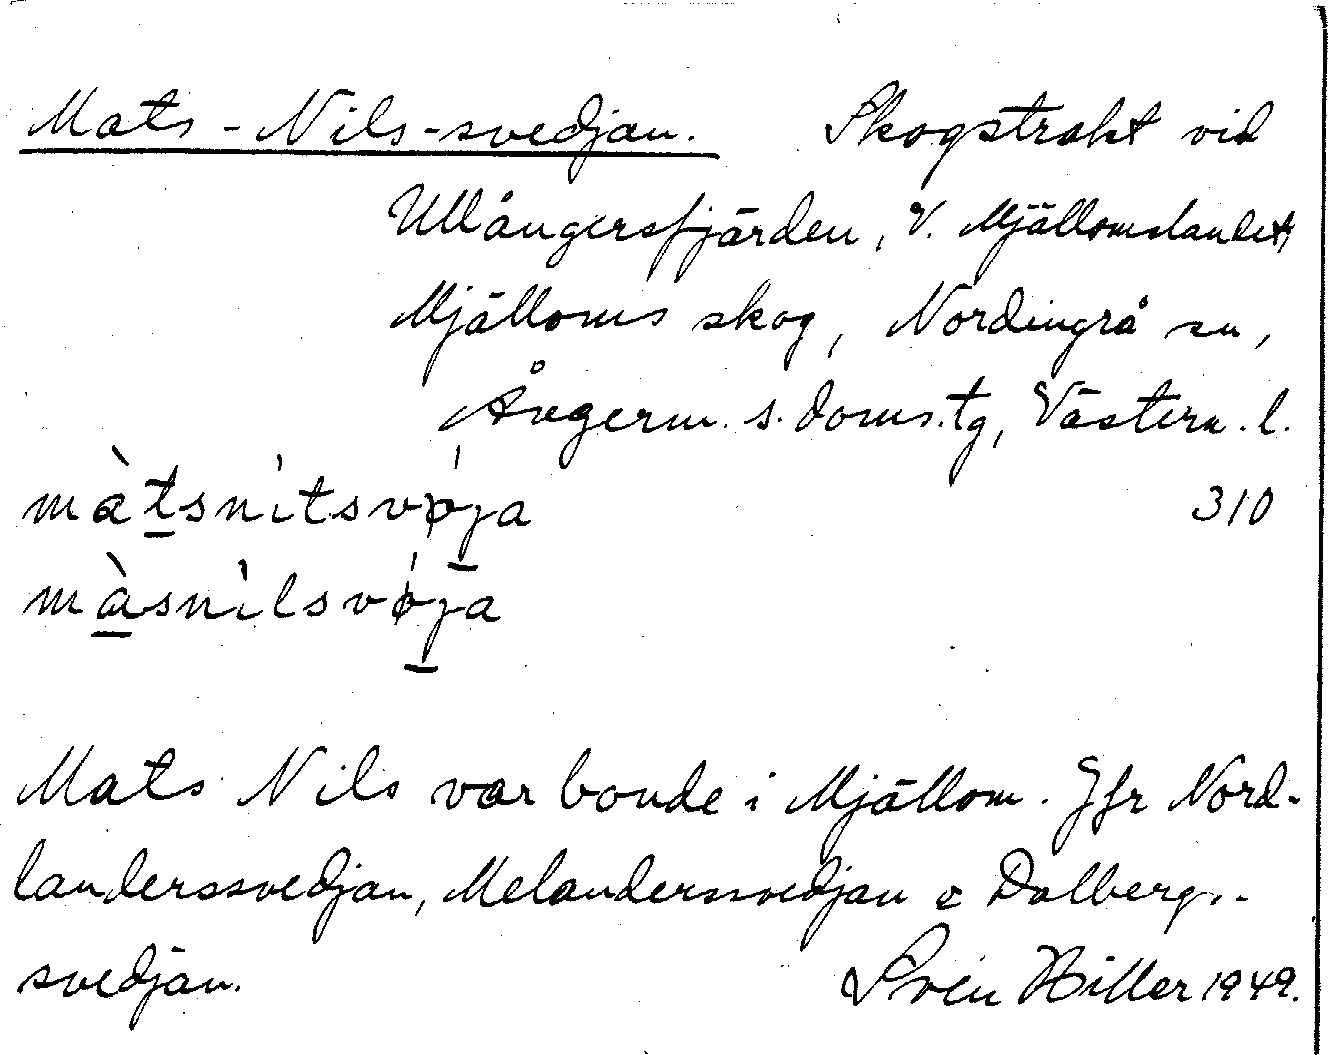 Mats-Nils-svedjan. Skogstrakt vid
Ullångersfjärden, V. Mjällomslandet,
Mjälloms skog, Nordingrå sn,
Ångerm. s. doms.tg, Västern. l.
màtsnìtsvǿja 310
màsnìlsvǿja
Mats Nils var bonde i Mjällom. Jfr Nord-
landerssvedjan, Melanderssvedjan o Dalbergs-
svedjan. Sven Hiller 1949.